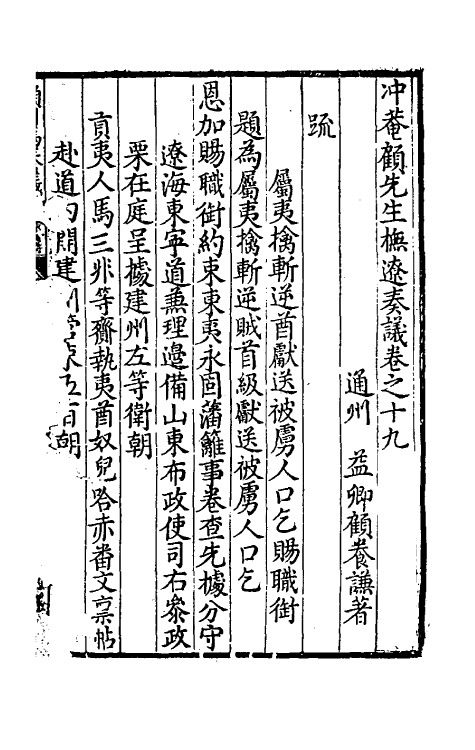 冲菴顧先生撫遼奏議卷之十九
通州 益卿顧養謙著
疏
屬夷擒斬逆酋獻送被虜人口乞賜職銜
題為屬夷擒斬逆賊首級獻送被虜人口乞
恩加賜職銜約束東夷永固藩籬事卷查先據分守
遼海東寧道兼理邊備山東布政使司右叅政
栗在庭呈據建州左等衛朝
貢夷人馬三非等齎執夷酋奴兒哈赤畨文禀帖
赴道內開建州